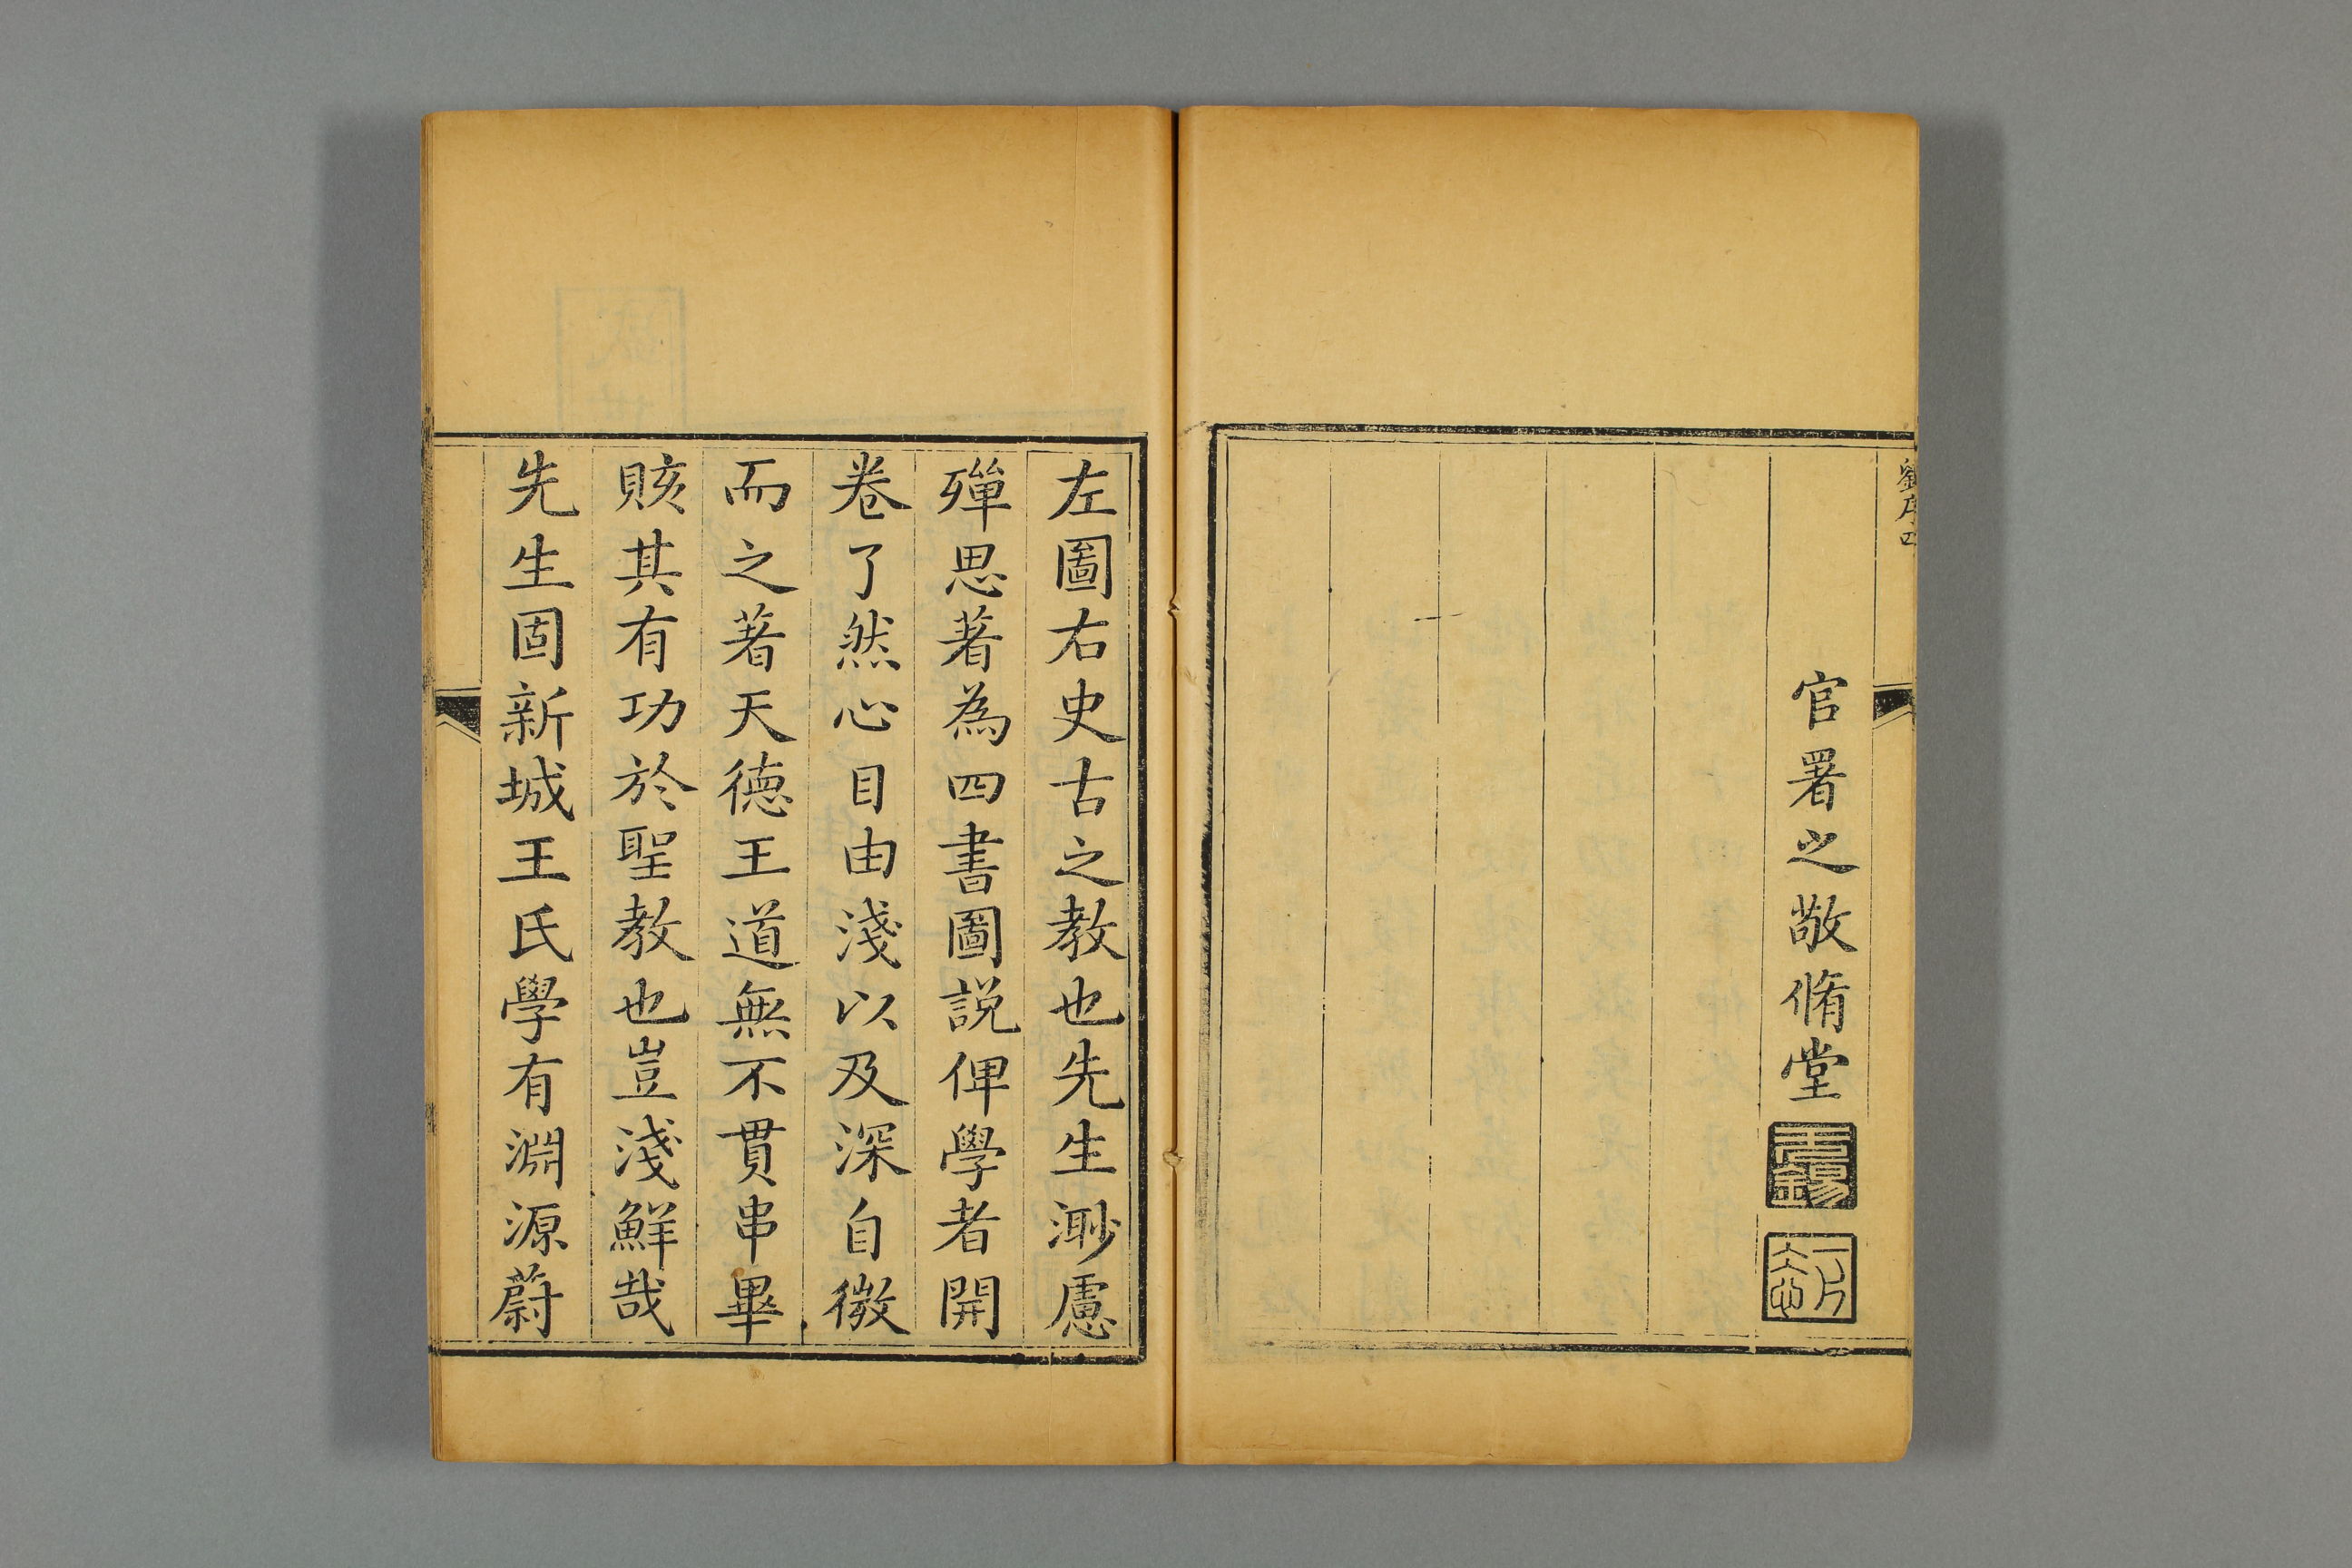 劉序四
官署之敬脩堂
左圖右史古之教也先生渺慮
殫思著為四書圖説俾學者開
卷了然心目由淺以及深自微
而之著天德王道無不貫串畢
賅其有功於聖教也豈淺鮮哉
先生固新城王氏學有淵源蔚